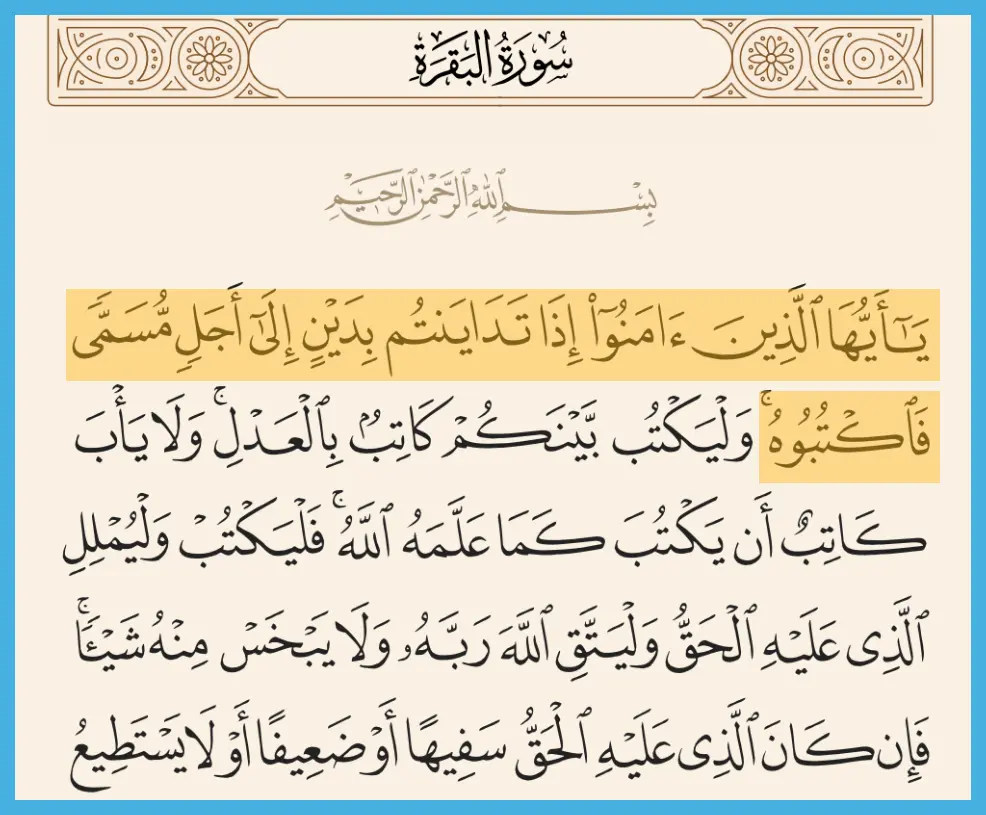 سُورَةُ البَقَرَةِ
بِسْمِ ٱللَّهِ ٱلرَّحْمَٰنِ ٱلرَّحِيمِ
يَـٰٓأَيُّهَا ٱلَّذِينَ ءَامَنُوٓا۟ إِذَا تَدَايَنتُم بِدَيْنٍ إِلَىٰٓ أَجَلٍ مُّسَمًّى
فَٱكْتُبُوهُ ۚ وَلْيَكْتُب بَّيْنَكُمْ كَاتِبٌۢ بِٱلْعَدْلِ ۚ وَلَا يَأْبَ
كَاتِبٌ أَن يَكْتُبَ كَمَا عَلَّمَهُ ٱللَّهُ ۚ فَلْيَكْتُبْ وَلْيُمْلِلِ
ٱلَّذِى عَلَيْهِ ٱلْحَقُّ وَلْيَتَّقِ ٱللَّهَ رَبَّهُۥ وَلَا يَبْخَسْ مِنْهُ شَيْـًٔا ۚ
فَإِن كَانَ ٱلَّذِى عَلَيْهِ ٱلْحَقُّ سَفِيهًا أَوْ ضَعِيفًا أَوْ لَا يَسْتَطِيعُ